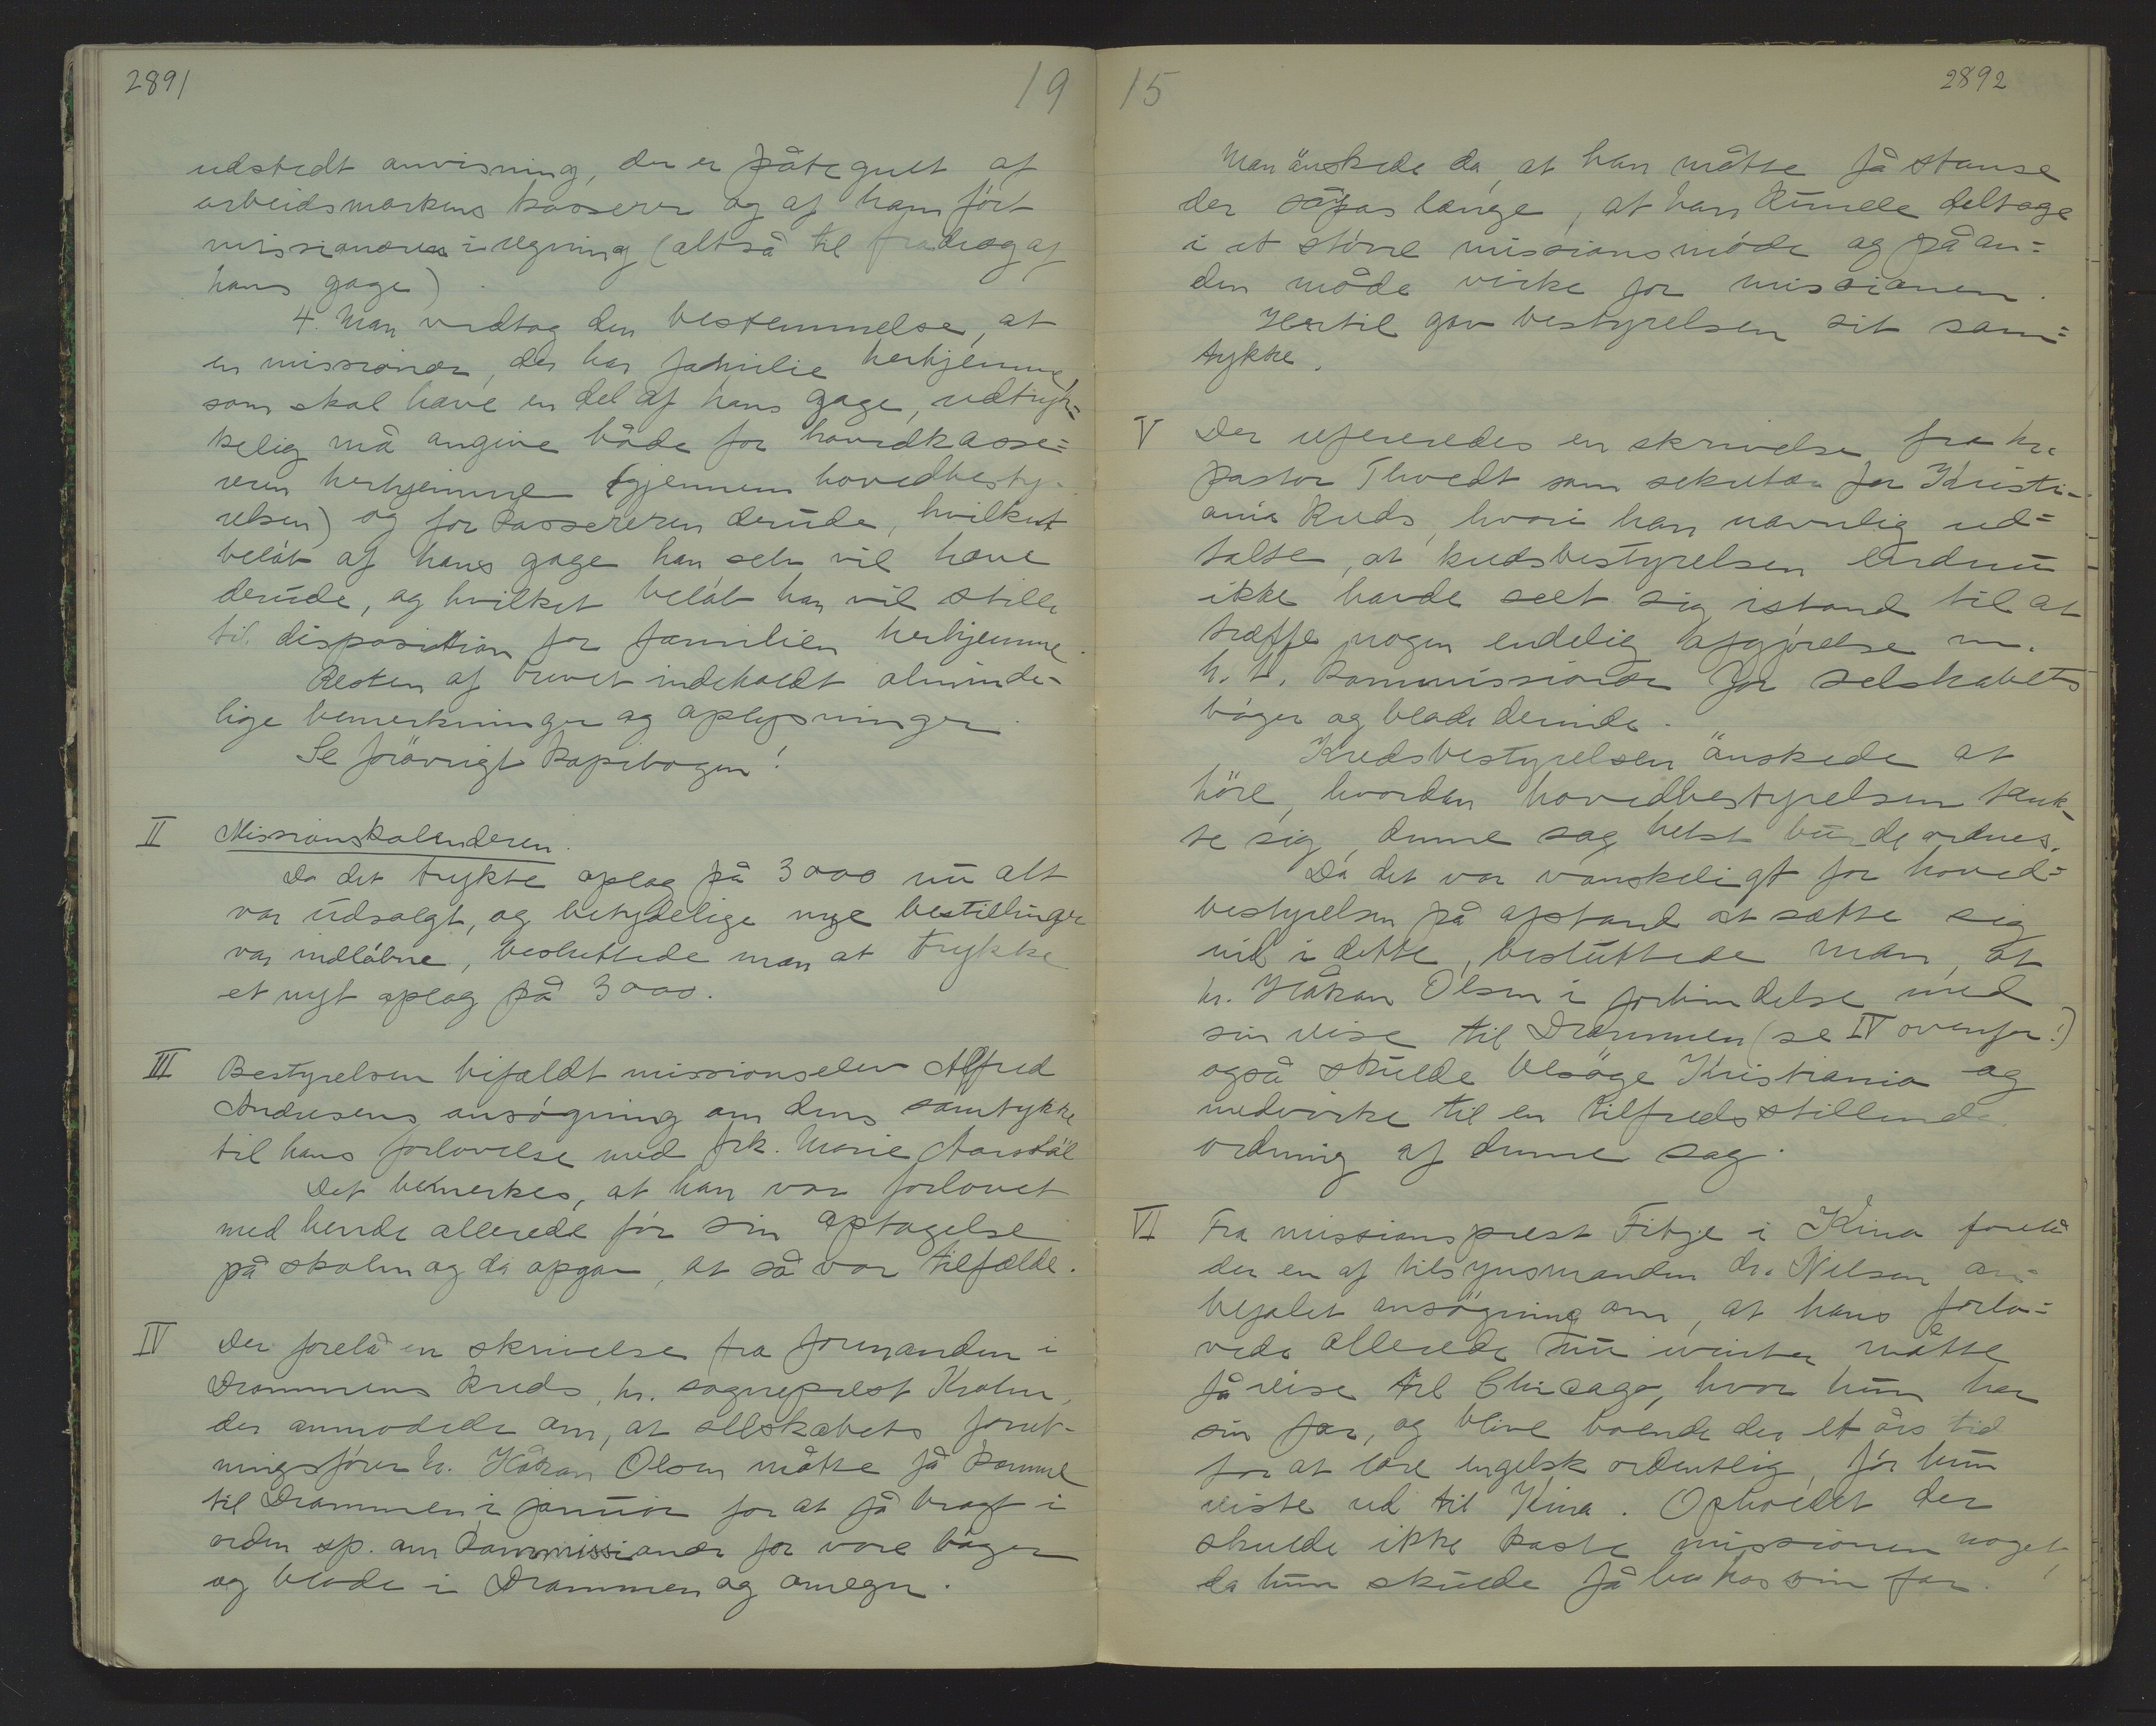 2891
19
udstedt anvisning, der er påtegnet af
arbeidsmarkens kasserer og af ham ført
missionæren i regning (altså til fradrag af
hans gage).
4. Man vedtog den bestemmelse, at
en missionær, der har familie herhjemme,
som skal have en del af hans gage, udtryk=
kelig må angive både for hovedkasse=
reren herhjemme (gjennem hovedbesty-
relsen) og for kassereren derude, hvilket
beløb af hans gage han selv vil have
derude, og hvilket beløb han vil stille
til disposition for familien herhjemme.
Resten af brevet indeholdt alminde-
lige bemerkninger og oplysninger.
Se forøvrigt kopibogen!
II Missionskalenderen.
Da det trykte oplag på 3000 nu alt
var udsolgt, og betydelige nye bestillinger
var indløbne, besluttede man at trykke
et nyt oplag på 3000.
III Bestyrelsen bifaldt missionselev Alfred
Andresens ansøgning om dens samtykke
til hans forlovelse med frk. Marie
Det bemerkes, at han var forlovet
med hende allerede før sin optagelse
på skolen og da opgav, at så var tilfælde.
IV Der forelå en skrivelse fra formanden i
Drammens kreds, hr. sogneprest Krohn,
der anmodede om, at selskabets foret-
ningsfører hr. Håkon Olsen måtte få komme
til Drammen i januar for at få bragt i
orden sp. om kommissionær for vore bøger
og blade i Drammen og omegn.
15
2892
Man ønskede da, at han måtte få stanse
der såpas længe, at han kunde deltage
i et større missionsmøde og på an=
den måde virke for missionen.
Hertil gav bestyrelsen sit sam=
tykke.
V Der refereredes en skrivelse fra hr.
pastor Thvedt som sekretær for Kristi-
ania kreds, hvori han navnlig ud=
talte, at kredsbestyrelsen endnu
ikke havde seet sig istand til at
træffe nogen endelig afgjørelse m.
h. t. kommissionær for selskabets
bøger og blade derinde.
Kredsbestyrelsen ønskede at
høre, hvordan hovedbestyrelsen tænk-
te sig, denne sag helst burde ordnes.
Da det var vanskeligt for hoved=
bestyrelsen på afstand at sætte sig
ind i dette, besluttede man, at
hr. Håkon Olsen i forbindelse med
sin reise til Drammen (se IV ovenfor!)
også skulde besøge Kristiania og
medvirke til en tilfredsstillende
ordning af denne sag.
VI Fra missionsprest Fitje i Kina forelå
der en af tilsynsmanden dr. Nilsen an-
befalet ansøgning om, at hans forlo=
vede allerede nu ivinter måtte
få reise til Chicago, hvor hun har
sin far, og blive boende der et års tid
for at lære engelsk ordentlig, før hun
reiste ud til Kina. Opholdet der
skulde ikke koste missionen noget,
da hun skulde få bo hos sin far.